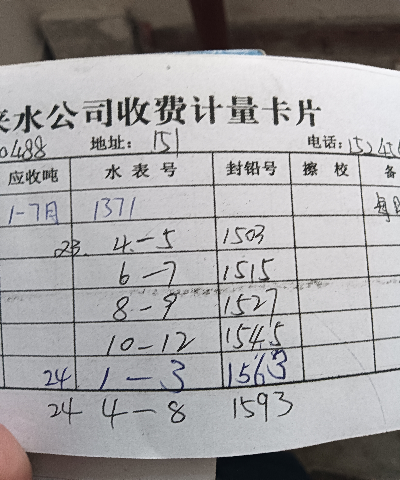 来水公司收费计量卡片
0488 地址: 151 电话: 15245
应收吨 水表号 封铅号 擦校 备
1-7月 1371 每
23. 4-5 1503
6-7 1515
8-9 1527
10-12 1545
24 1-3 1563
24 4-8 1593